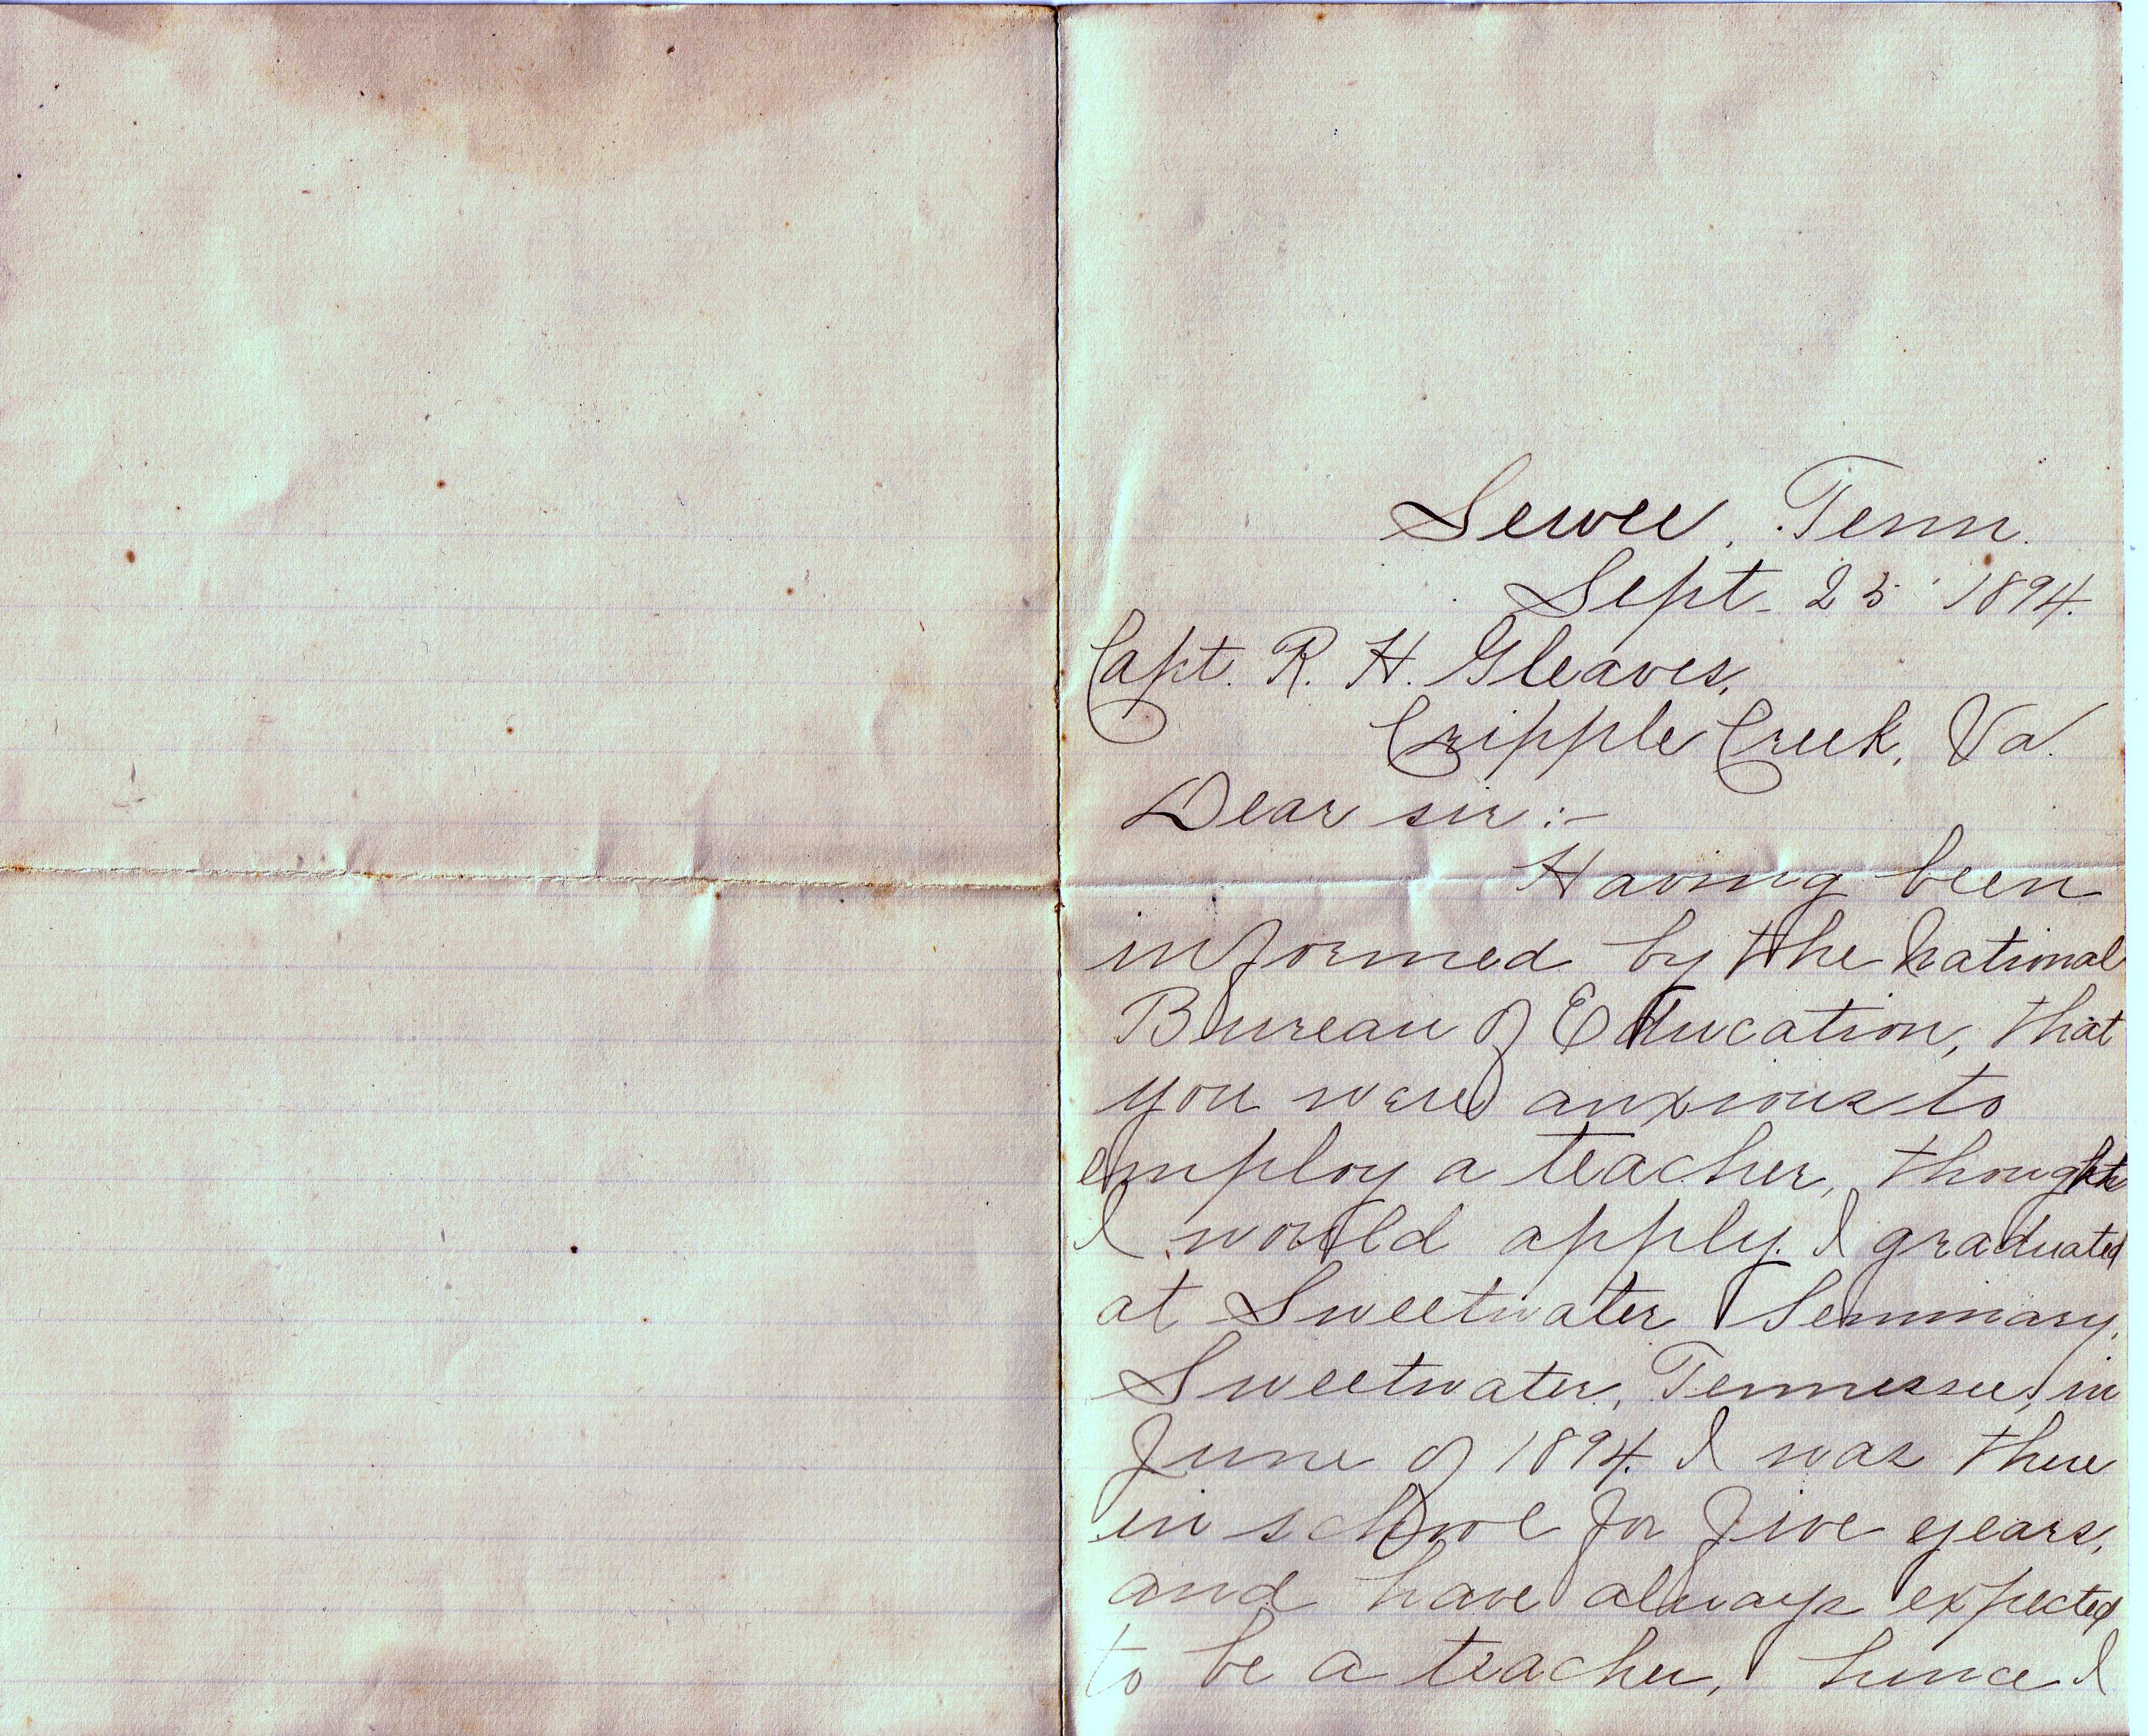 Sewee, Tenn.
Sept. 25 1894.
Capt. R. H. Gleaves,
Cripple Creek, Va.
Dear sir :-
Having been
informed by the National
Bureau of Education, that
you were anxious to
employ a teacher, thought
I would apply. I graduated
at Sweetwater Seminary,
Sweetwater, Tennessee, in
June of 1894. I was there
in school for five years,
and have always expected
to be a teacher, hence I